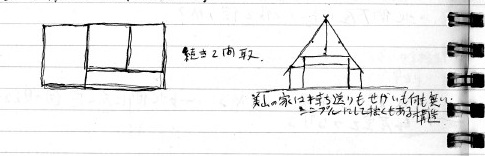 続き2間取.
美山の家は持ち送りもせがいも何も無い.
シンプルにして強くもある
構造